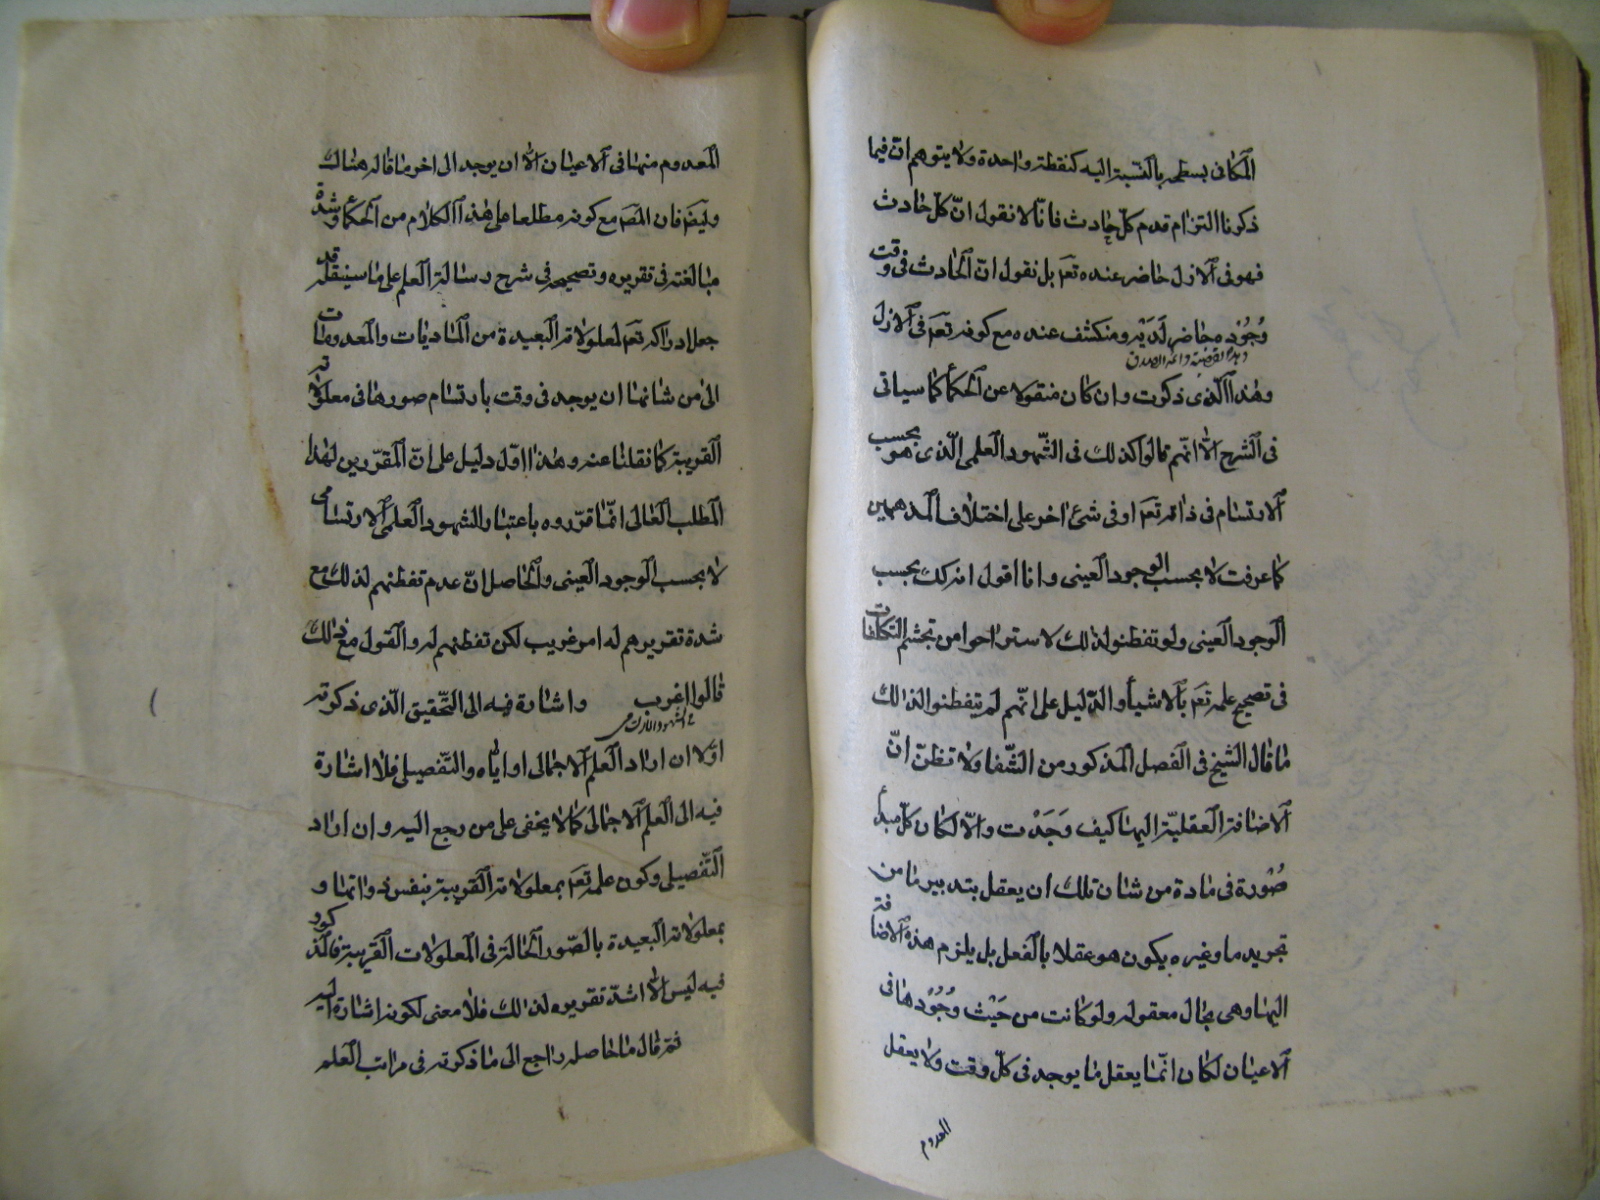 المكانى بسطحه بالنسبة اليه كنقطة واحدة ولا يتوهم ان فيما
ذكرنا التزام قدم كل حادث فانا لا نقول ان كل حادث
فهو فى الازل حاضر عنده تعم بل نقول ان الحادث فى وقت
وجوده حاضر لديه ومنكشف عنده مع كونه تعم فى الازل
وهذا الذى ذكرت وان كان منقولا عن الحكمأ كما سياتى
فى الشرح الا انهم قالوا كذلك فى الشهود العلمى الذى هو بحسب
الارتسام فى ذاته تعم او فى شئ اخر على اختلاف المذهبين
كما عرفت لا بحسب الوجود العينى وانا اقول انه كك بحسب
الوجود العينى ولو تفطنوا لذلك لاستراحوا من تجشم التكلفات
فى تصحيح علمه تعم بالاشيأ والدليل على انهم لم يتفطنوا لذلك
ما قال الشيخ فى الفصل المذكور من الشفا ولا تظن ان
الاضافة العقلية اليها كيف وجدت والا لكان كل مبدأ
صورة فى مادة من شان تلك ان يعقل بتدبير ما من
تجريد ما وغيره يكون هو عقلا بالفعل بل يلزم هذه الاضافة
اليها وهى بحال معقوله ولو كانت من حيث وجودها فى
الاعيان لكان انما يعقل ما يوجد فى كل وقت ولا يعقل
المعدوم
المعدوم منها فى الاعيان الا ان يوجد الى اخر ما قاله هناك
وليضم فان المصم مع كونه مطلعا على هذا الكلام من الحكمأ وشدة
مبالغته فى تقريره وتصحيحه فى شرح رسالة العلم على ما سينقله قد
جعل ادراكه تعم لمعلولاته البعيدة من الماديات والمعدومات
التى من شانها ان يوجد فى وقت بارتسام صورها فى معلولاته
القريبة كما نقلنا عنه وهذا اول دليل على ان المقررين لهذا
المطلب العالى انما قرروه باعتبار الشهود العلمى الارتسامى
لا بحسب الوجود العينى والحاصل ان عدم تفطنهم لذلك مع
شدة تقريرهم له امر غريب لكن تفطنهم له والقول مع ذلك
قالوا اغرب واشارة فيه الى التحقيق الذى ذكرته
اولا ان اراد العلم الاجمالى او اياه والتفصيلى فلا اشارة
فيه الى العلم الاجمالى كما لا يخفى على من رجع اليه وان اراد
التفصيلى وكون علمه تعم بمعلولاته القريبة بنفس ذواتها و
بمعلولاته البعيدة بالصور الحالة فى المعلولات القريبة فالمذكور
فيه ليس الا اشد تقريره لذلك فلا معنى لكونه اشارة اليه
ثم قال ما حاصله راجع الى ما ذكرته فى مراتب العلم